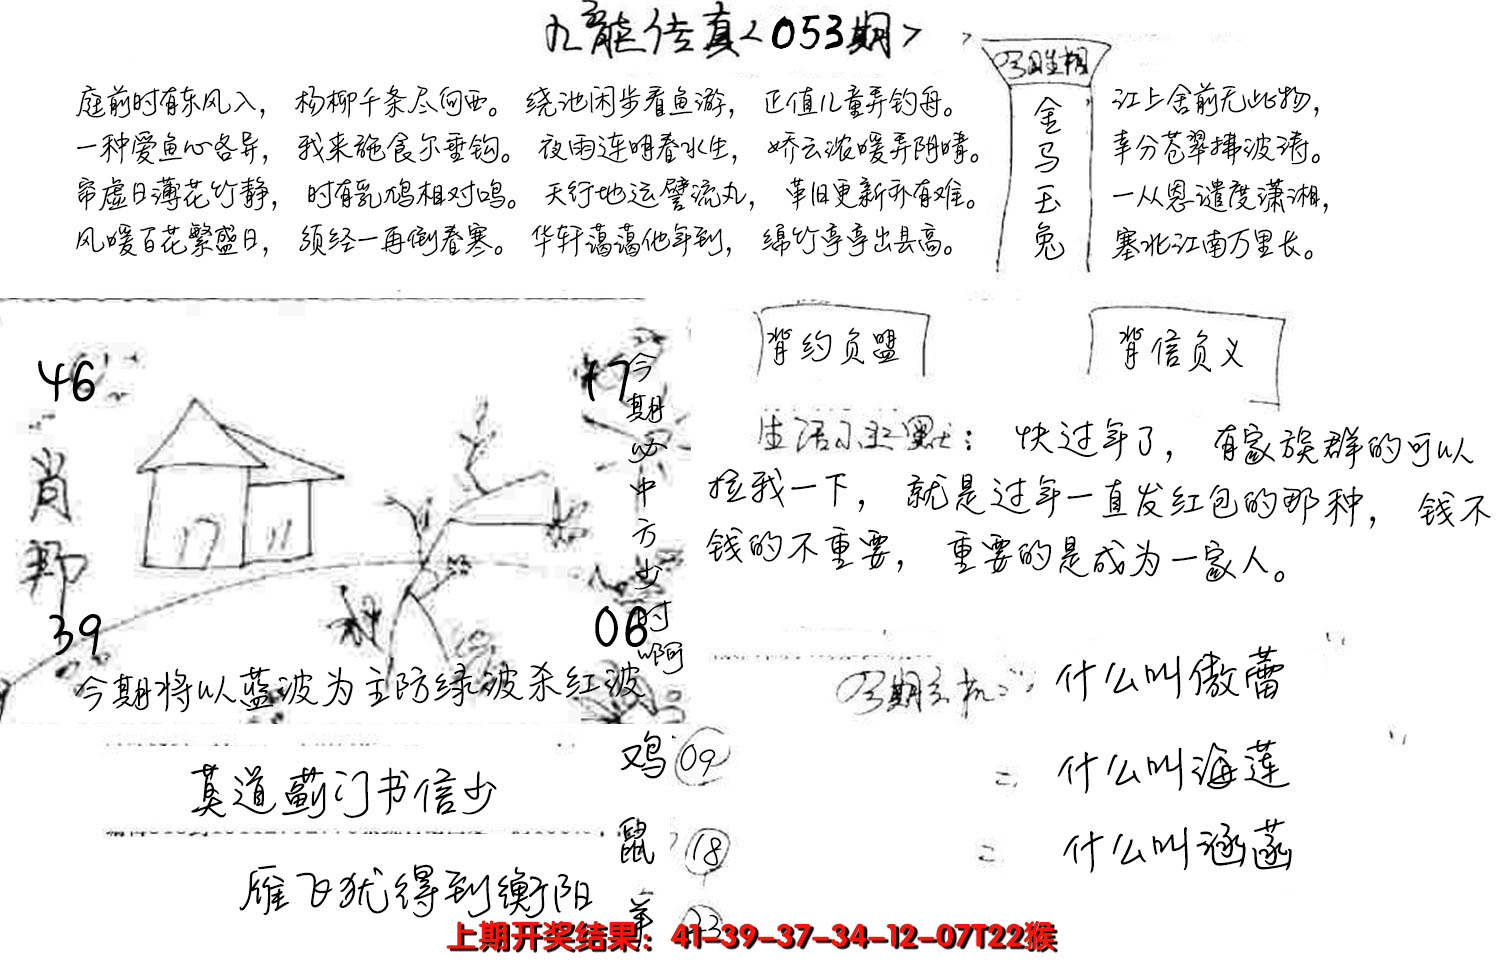 九龍传真<053期>
庭前时有东风入，杨柳千条尽向西。绕池闲步看鱼游，正值儿童弄钓舟。
一种爱鱼心各异，我来施食尔垂钩。夜雨连明春水生，娇云浓暖弄阴晴。
帘虚日薄花竹静，时有乳鸠相对鸣。天行地运譬流丸，革旧更新亦有难。
风暖百花繁盛日，须经一再倒春寒。华轩蔼蔼他年到，绵竹亭亭出县高。
金马玉兔
江上舍前无此物，
幸分苍翠拂波涛。
一从恩谴度潇湘，
塞北江南万里长。
46
17
肖
39
06
今期必中方少时啊
今期将以蓝波为主防绿波杀红波
背约负盟
背信负义
生活幽默：快过年了，有家族群的可以
拉我一下，就是过年一直发红包的那种，钱不
钱的不重要，重要的是成为一家人。
什么叫傲蕾
什么叫海莲
什么叫涵菡
莫道蓟门书信少
雁飞犹得到衡阳
鸡 09
鼠 18
羊 23
上期开奖结果：41-39-37-34-12-07T22猴